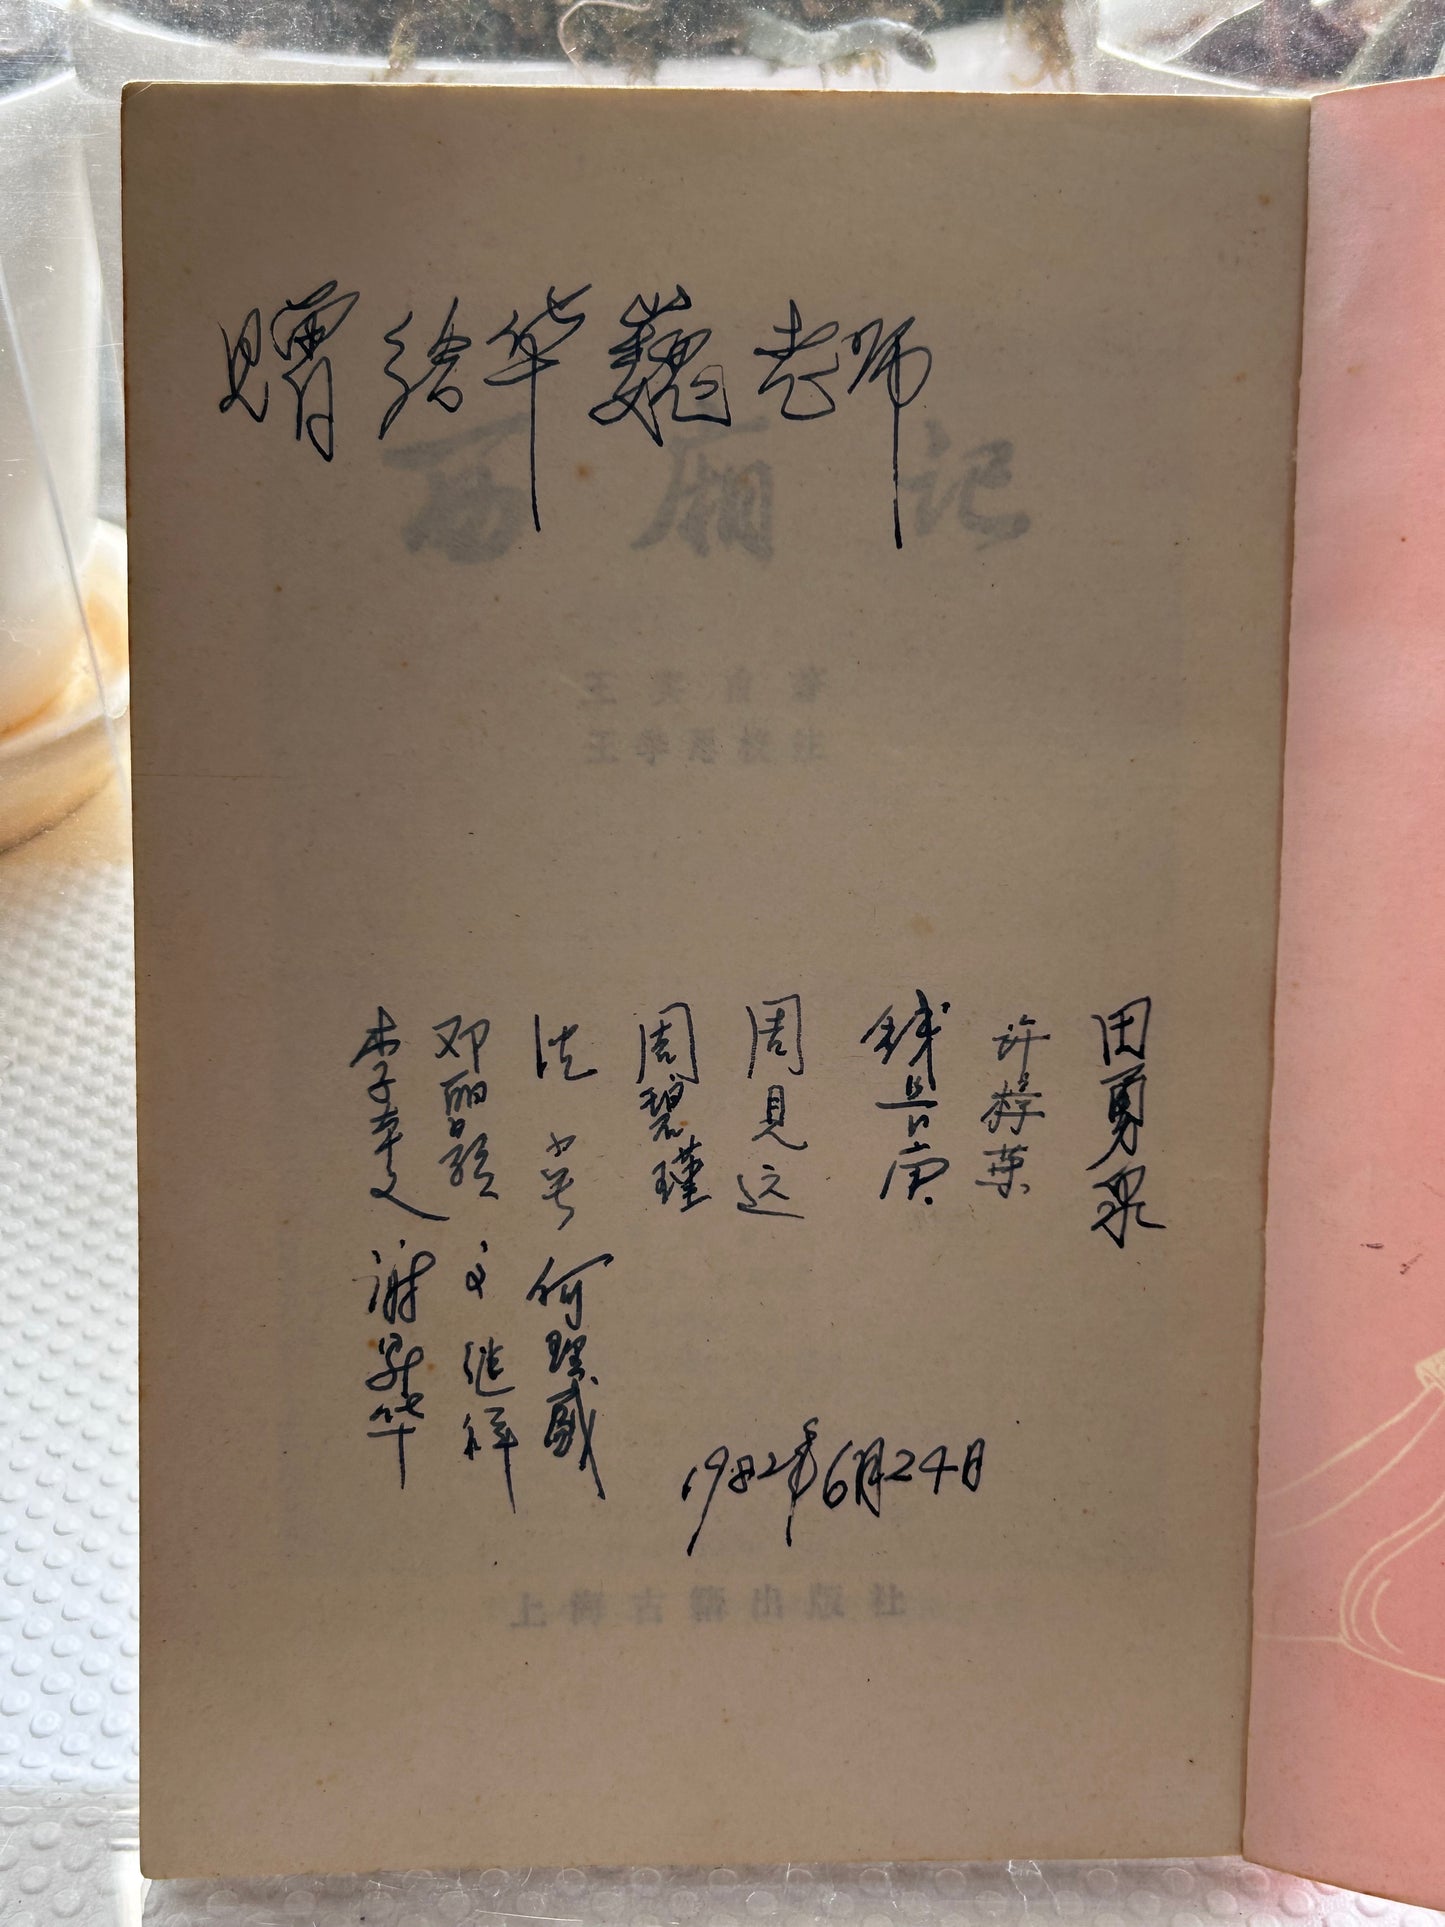 赠给华巍老师
西厢记
王实甫著
王季思校注
田勇泉
许梓葉
钱益庚
周見远
周碧瑾
洪
邓丽晶
李
何
文继祥
谢昇华
1982年6月24日
上海古籍出版社